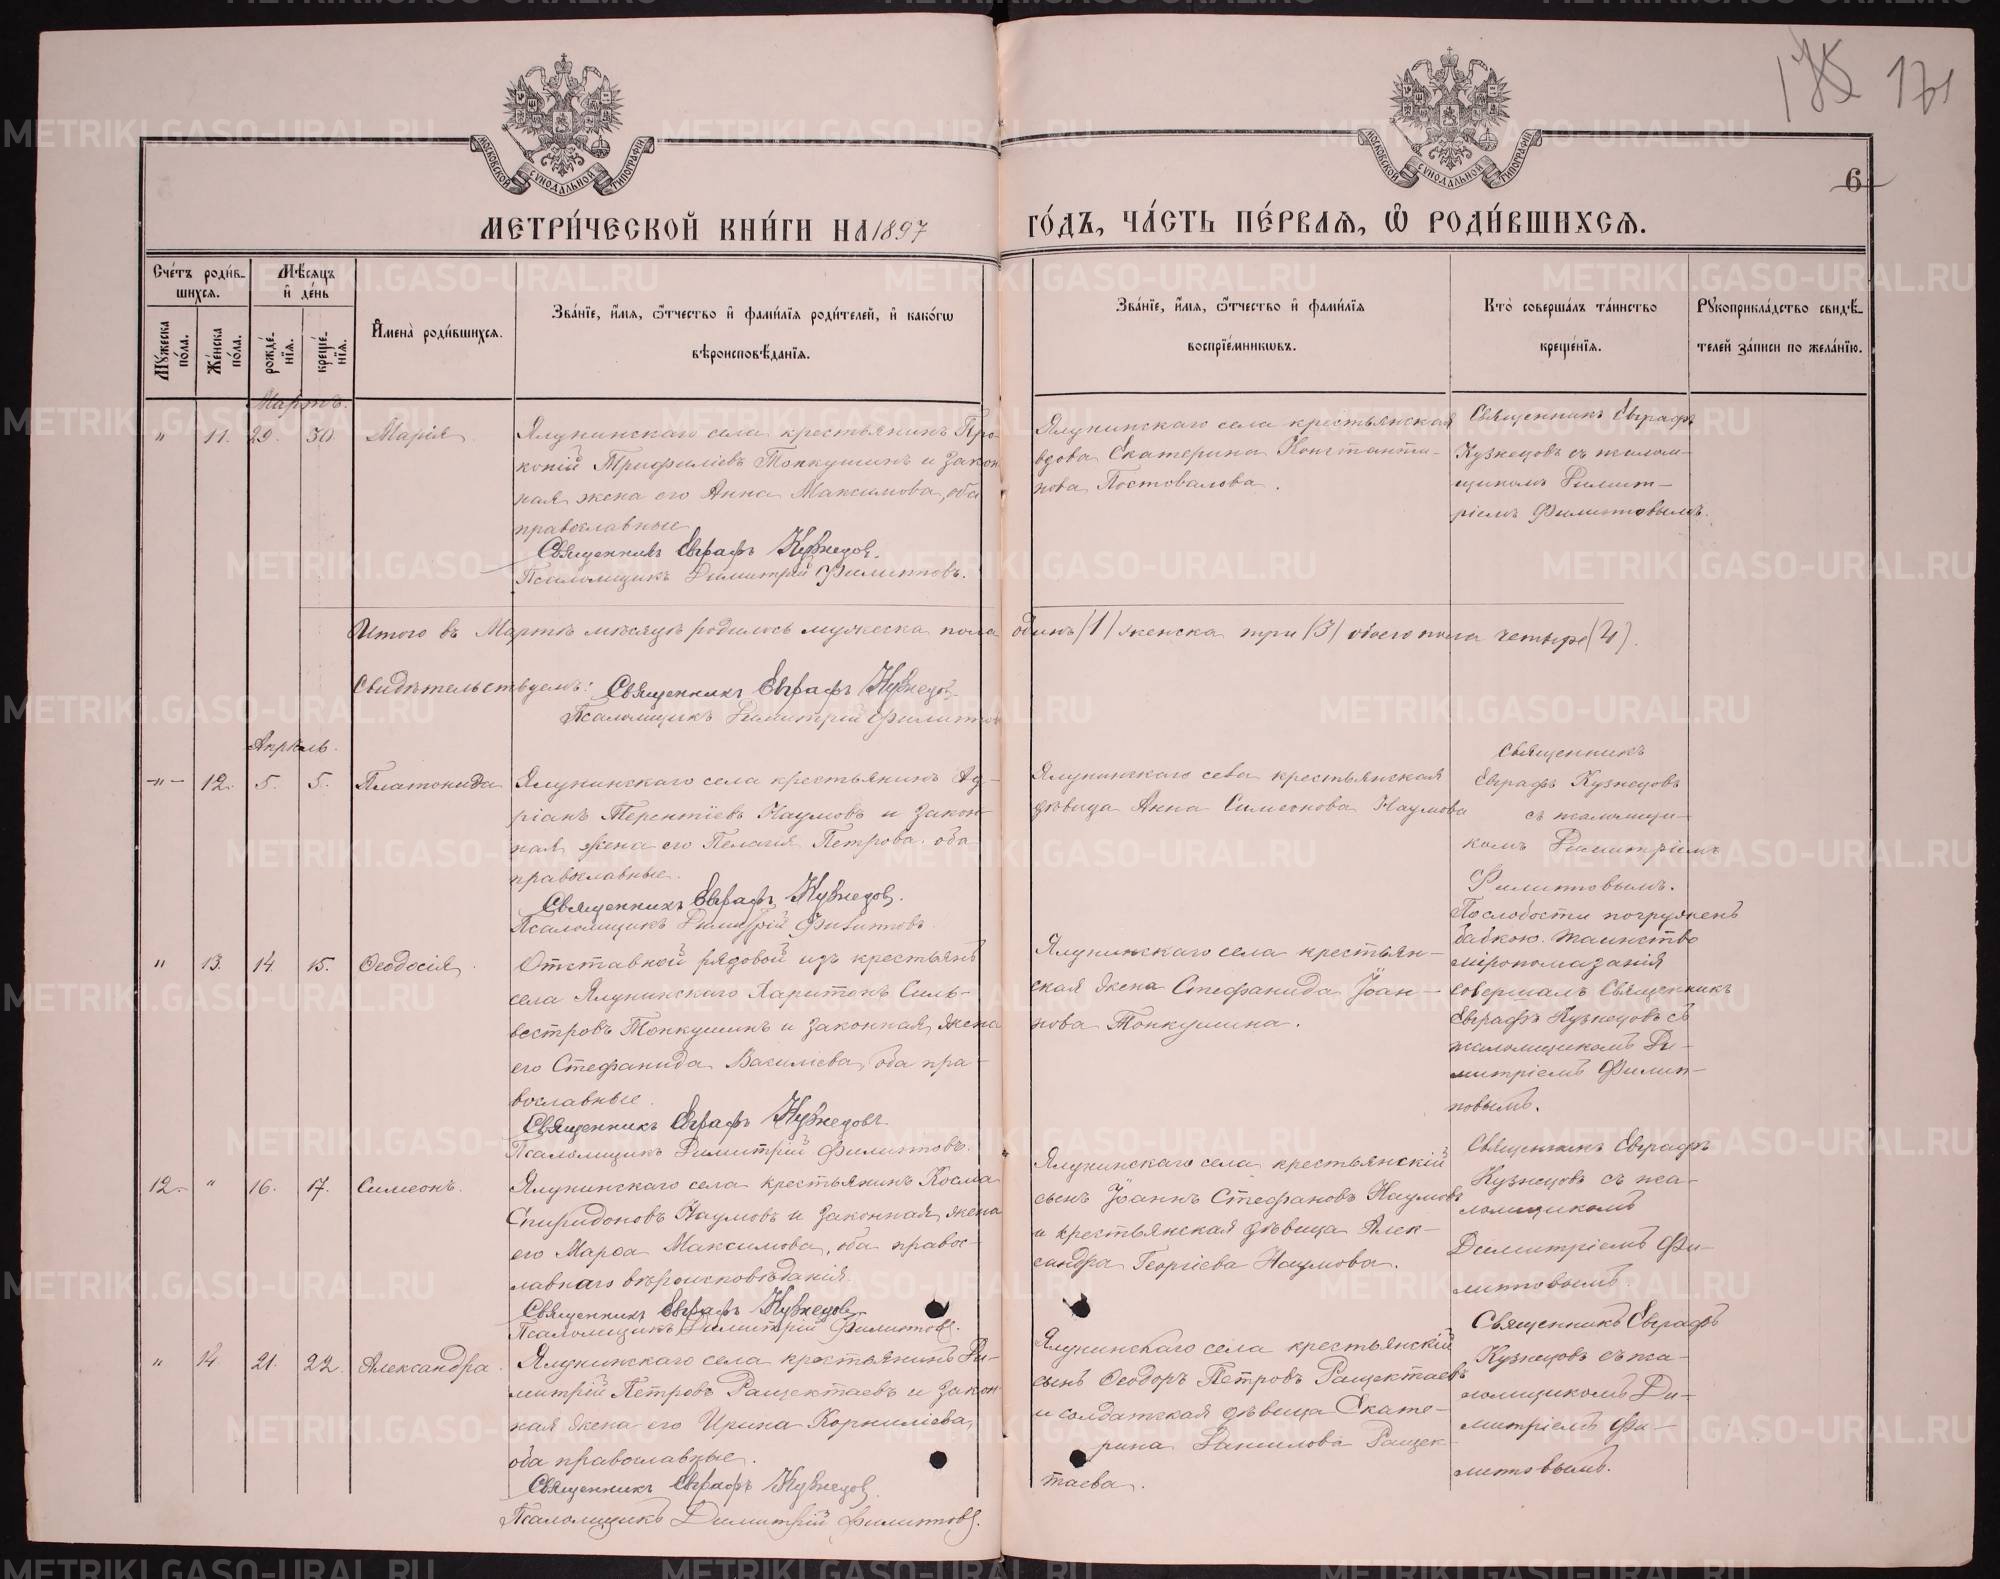 175 171
МОСКОВСКОЙ СѴНОДАЛЬНОЙ ТИПОГРАФІИ
МОСКОВСКОЙ СѴНОДАЛЬНОЙ ТИПОГРАФІИ
6
МЕТРИ́ЧЕСКОЙ КНИ́ГИ НА 1897 ГО́ДЪ, ЧА́СТЬ ПЕ́РВАѦ, Ѡ РОДИ́ВШИХСѦ.
Сче́тъ роди́в-
шихсѧ.
Мѣ́сѧцъ
и҆ де́нь
Мꙋ́жеска по́ла.
Же́нска по́ла.
рожде́-
нїѧ.
креще́-
нїѧ.
И҆мена̀ роди́вшихсѧ.
Зва́нїе, и҆́мѧ, ѻ҆́тчество и҆ фами́лїѧ роди́телей, и҆ како́гѡ
вѣроисповѣ́данїѧ.
Зва́нїе, и҆́мѧ, ѻ҆́тчество и҆ фами́лїѧ
воспрїе́мникѡвъ.
Кто̀ соверша́лъ та́инство
креще́нїѧ.
Рꙋкоприкла́дство свидѣ́-
телей за́писи по жела́нїю.
Мартъ.
" 11. 29. 30. Марія
Ялунинскаго села крестьянинъ Про-
копій Трифиліевъ Топкушинъ и закон
ная жена его Анна Максимова, оба
православные
Священникъ Евграфъ Кузнецов.
Псаломщикъ Димитрій Филипповъ.
Ялунинскаго села крестьянская
вдова Екатерина Константи-
нова Постовалова.
Священникъ Евграфъ
Кузнецовъ съ псалом-
щикомъ Димит-
ріемъ Филипповымъ.
Итого въ Мартѣ мѣсяцѣ родилось мужеска пола одинъ (1) женска три (3) обоего пола четыре (4).
Свидѣтельствуемъ: Священникъ Евграфъ Кузнецов.
Псаломщикъ Димитрій Филиппов
Апрѣль.
-"- 12. 5. 5. Платонида
Ялунинскаго села крестьянинъ Ад-
ріанъ Терентіевъ Наумовъ и закон-
ная жена его Пелагія Петрова. оба
православные.
Священникъ Евграфъ Кузнецов.
Псаломщикъ Димитрій Филипповъ
Ялунинскаго села крестьянская
дѣвица Анна Симеонова Наумова
Священникъ
Евграфъ Кузнецовъ
съ псаломщи-
комъ Димитріемъ
Филипповымъ.
" 13. 14. 15. Ѳеодосія
Отставной рядовой изъ крестьянъ
села Ялунинскаго Харитонъ Силь-
вестровъ Топкушинъ и законная жена
его Стефанида Василіева, оба пра-
вославные.
Священникъ Евграфъ Кузнецовъ.
Псаломщикъ Димитрій Филипповъ.
Ялунинскаго села крестьян-
ская жена Стефанида Іоан-
нова Топкушина.
По слабости погруженъ
бабкою. Таинство
мѵропомазанія
совершалъ Священникъ
Евграфъ Кузнецовъ съ
псаломщикомъ Ди-
митріемъ Филип-
повымъ.
12. " 16. 17. Симеонъ.
Ялунинскаго села крестьянинъ Косма
Спиридоновъ Наумовъ и законная жена
его Марѳа Максимова, оба правос-
лавнаго вѣроисповѣданія.
Священникъ Евграфъ Кузнецов.
Псаломщикъ Димитрій Филиппов.
Ялунинскаго села крестьянскій
сынъ Іоаннъ Стефановъ Наумовъ
и крестьянская дѣвица Алек-
сандра Георгіева Наумова.
Священникъ Евграфъ
Кузнецовъ съ пса-
ломщикомъ
Димитріемъ Фи-
липповымъ.
" 14 21. 22. Александра.
Ялунинскаго села крестьянинъ Ди-
митрій Петровъ Ращектаевъ и закон
ная жена его Ирина Корниліева,
оба православные.
Священникъ Евграфъ Кузнецов.
Псаломщикъ Димитрій Филиппов.
Ялунинскаго села крестьянскій
сынъ Ѳеодоръ Петровъ Ращектаевъ
и солдатская дѣвица Екате-
рина Данилова Ращек-
таева.
Священникъ Евграфъ
Кузнецовъ съ пса-
ломщикомъ Ди-
митріемъ Фи-
липповымъ.
METRIKI.GASO-URAL.RU